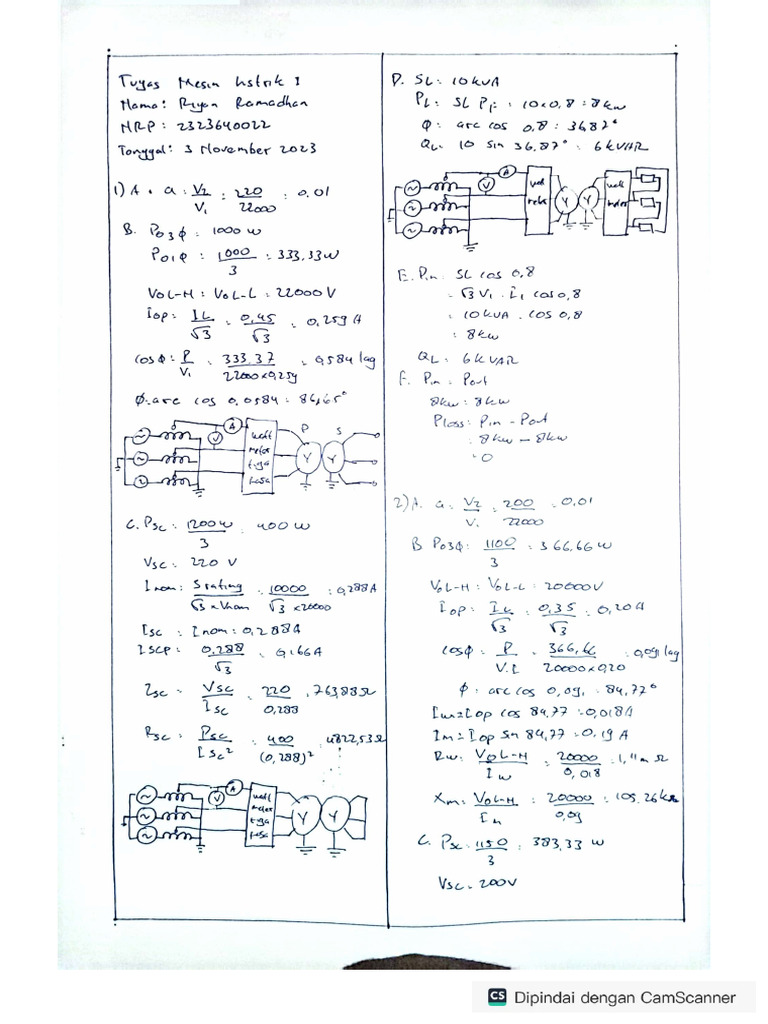 Tugas Mesin Listrik 1
Nama: Riyan Ramadhan
NRP: 2323640022
Tanggal: 3 November 2023
1) A. a: V2/V1 : 220/22000 : 0,01
B. Po3φ: 1000 W
Po1φ: 1000/3 : 333,33 W
VoL-N: VoL-L: 22000 V
Iop: IL/√3 : 0,45/√3 : 0,259 A
cos φ: P/V1 : 333,37/22000x0,259 : 0,584 lag
φ: arc cos 0,0584: 86,65°
A
V
watt
meter
tiga
fasa
P
S
Y
Y
C. Psc: 1200W/3 : 400 W
Vsc: 220 V
Inom: S rating/√3 x Vnom : 10000/√3 x20000 : 0,288A
Isc : Inom: 0,288A
Iscp: 0,288/√3 : 0,166A
Zsc : Vsc/Isc : 220/0,288 : 763,88Ω
Rsc : Psc/Isc² : 400/(0,288)² : 4822,53Ω
A
V
watt
meter
tiga
fasa
Y
Y
D. SL: 10 kVA
PL: SL Pf : 10x0,8 : 8kw
φ: arc cos 0,8: 36,87°
QL: 10 sin 36,87° : 6 kVAR
A
V
watt
meter
Y
Y
watt
meter
E. Pin : SL cos 0,8
: √3 V1 . I1 cos 0,8
: 10 kVA . cos 0,8
: 8kw
QL: 6kVAR
F. Pin : Pout
8kw : 8kw
Ploss: Pin - Pout
: 8kw - 8kw
: 0
2) A. a: V2/V1 : 200/22000 : 0,01
B Po3φ: 1100/3 : 366,66 W
VoL-N: VoL-L : 20000V
Iop: IL/√3 : 0,35/√3 : 0,20A
cosφ: P/V.I : 366,66/20000x0,20 : 0,091 lag
φ: arc cos 0,091 : 84,77°
Iw=Iop cos 84,77 : 0,018A
Im=Iop sin 84,77 : 0,19 A
Rw: VoL-N/Iw : 20000/0,018 : 1,11m Ω
Xm: VoL-N/Im : 20000/0,09 : 105,26kΩ
C. Psc: 1150/3 : 383,33 W
Vsc : 200V
CS Dipindai dengan CamScanner